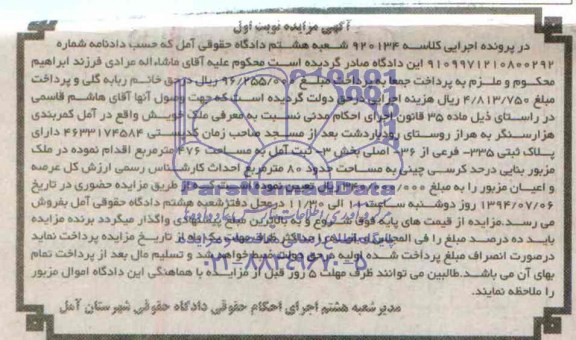 آگهی مزایده نوبت اول
در پرونده اجرایی کلاسه ۹۲۰۱۳۴ شعبه هشتم دادگاه حقوقی آمل که حسب دادنامه شماره
۹۱۰۹۹۷۱۲۱۰۸۰۰۲۹۲ این دادگاه صادر گردیده است محکوم علیه آقای ماشاءاله مرادی فرزند ابراهیم
محکوم و ملزم به پرداخت جمعا به پرداخت مبلغ ۹۶/۲۵۵/۰۰۰ ریال درحق خانم ربابه گلی و پرداخت
مبلغ ۴/۸۱۳/۷۵۰ ریال هزینه اجرایی درحق دولت گردیده است که جهت وصول آنها آقای هاشم قاسمی
در راستای ذیل ماده ۳۵ قانون اجرای احکام مدنی نسبت به معرفی ملک خویش واقع در آمل کمربندی
هزارسنگر به هراز روستای رودباردشت بعد از مسجد صاحب زمان کدپستی ۴۶۳۳۱۷۴۵۸۴ دارای
پلاک ثبتی ۳۳۵- فرعی از ۳۶- اصلی بخش ۳- ثبت آمل به مساحت ۴۷۶ مترمربع اقدام نموده در ملک
مزبور بنایی درحد کرسی چینی به مساحت حدود ۸۰ مترمربع احداث کارشناس رسمی ارزش کل عرصه
و اعیان مزبور را به مبلغ ریال تعیین نموده است که از طریق مزایده حضوری در تاریخ
۱۳۹۴/۰۷/۰۶ روز دوشنبه ساعت ۱۱ الی ۱۱/۳۰ درمحل دفترشعبه هشتم دادگاه حقوقی آمل بفروش
می رسد.مزایده از قیمت های پایه فوق شروع و به بالاترین مبلغ پیشنهادی واگذار میگردد برنده مزایده
باید ده درصد مبلغ را فی المجلس و مابقی را حداکثر ظرف مهلت یک ماه از تاریخ مزایده پرداخت نماید
درصورت انصراف مبلغ پرداخت شده اولیه به حق دولت ضبط خواهد شد و تسلیم مال بعد از پرداخت تمام
بهای آن می باشد.طالبین می توانند ظرف مهلت ۵ روز قبل از مزایده با هماهنگی این دادگاه اموال مزبور
را ملاحظه نمایند.
مدیر شعبه هشتم اجرای احکام حقوقی دادگاه حقوقی شهرستان آمل
ParsNamadData
۰۲۱-۸۸۳۴۹۶۷۰-۵